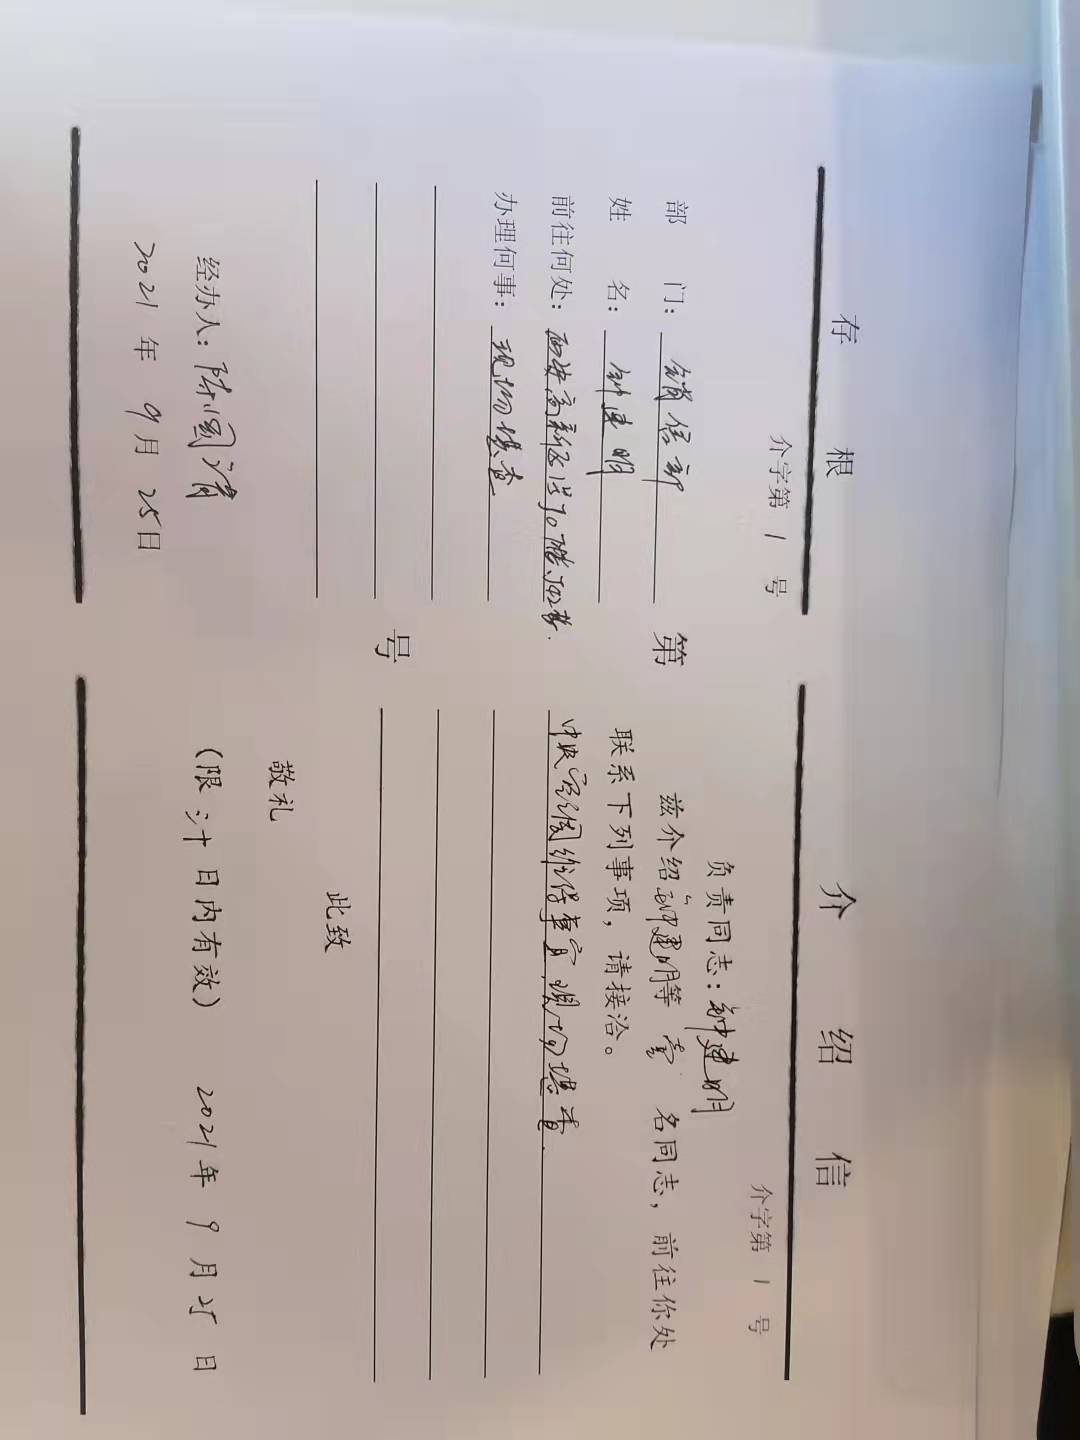 存 根
介字第 1 号
部 门: 销售部
姓 名: 钟建明
前往何处: 西安高新区
办理何事: 现场堪查
经办人: 陈国清
2021 年 9 月 25 日
第
号
介 绍 信
介字第 1 号
负责同志: 钟建明
兹介绍 钟建明等 壹 名同志, 前往你处
联系下列事项, 请接洽。
中央空调维保事宜, 现场堪查.
此致
敬礼
(限 三十 日内有效) 2021 年 9 月 25 日